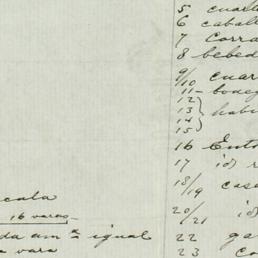 5 cuart
6 caball
7 Corra
8 bebed
9/10 cuar
11 - bode
12
13 } habi
14
15
16 Ent
17 id r
18/19 casa
20/21 id
22 ga
23 Co
cala
16 varas
da am a igual
a vara